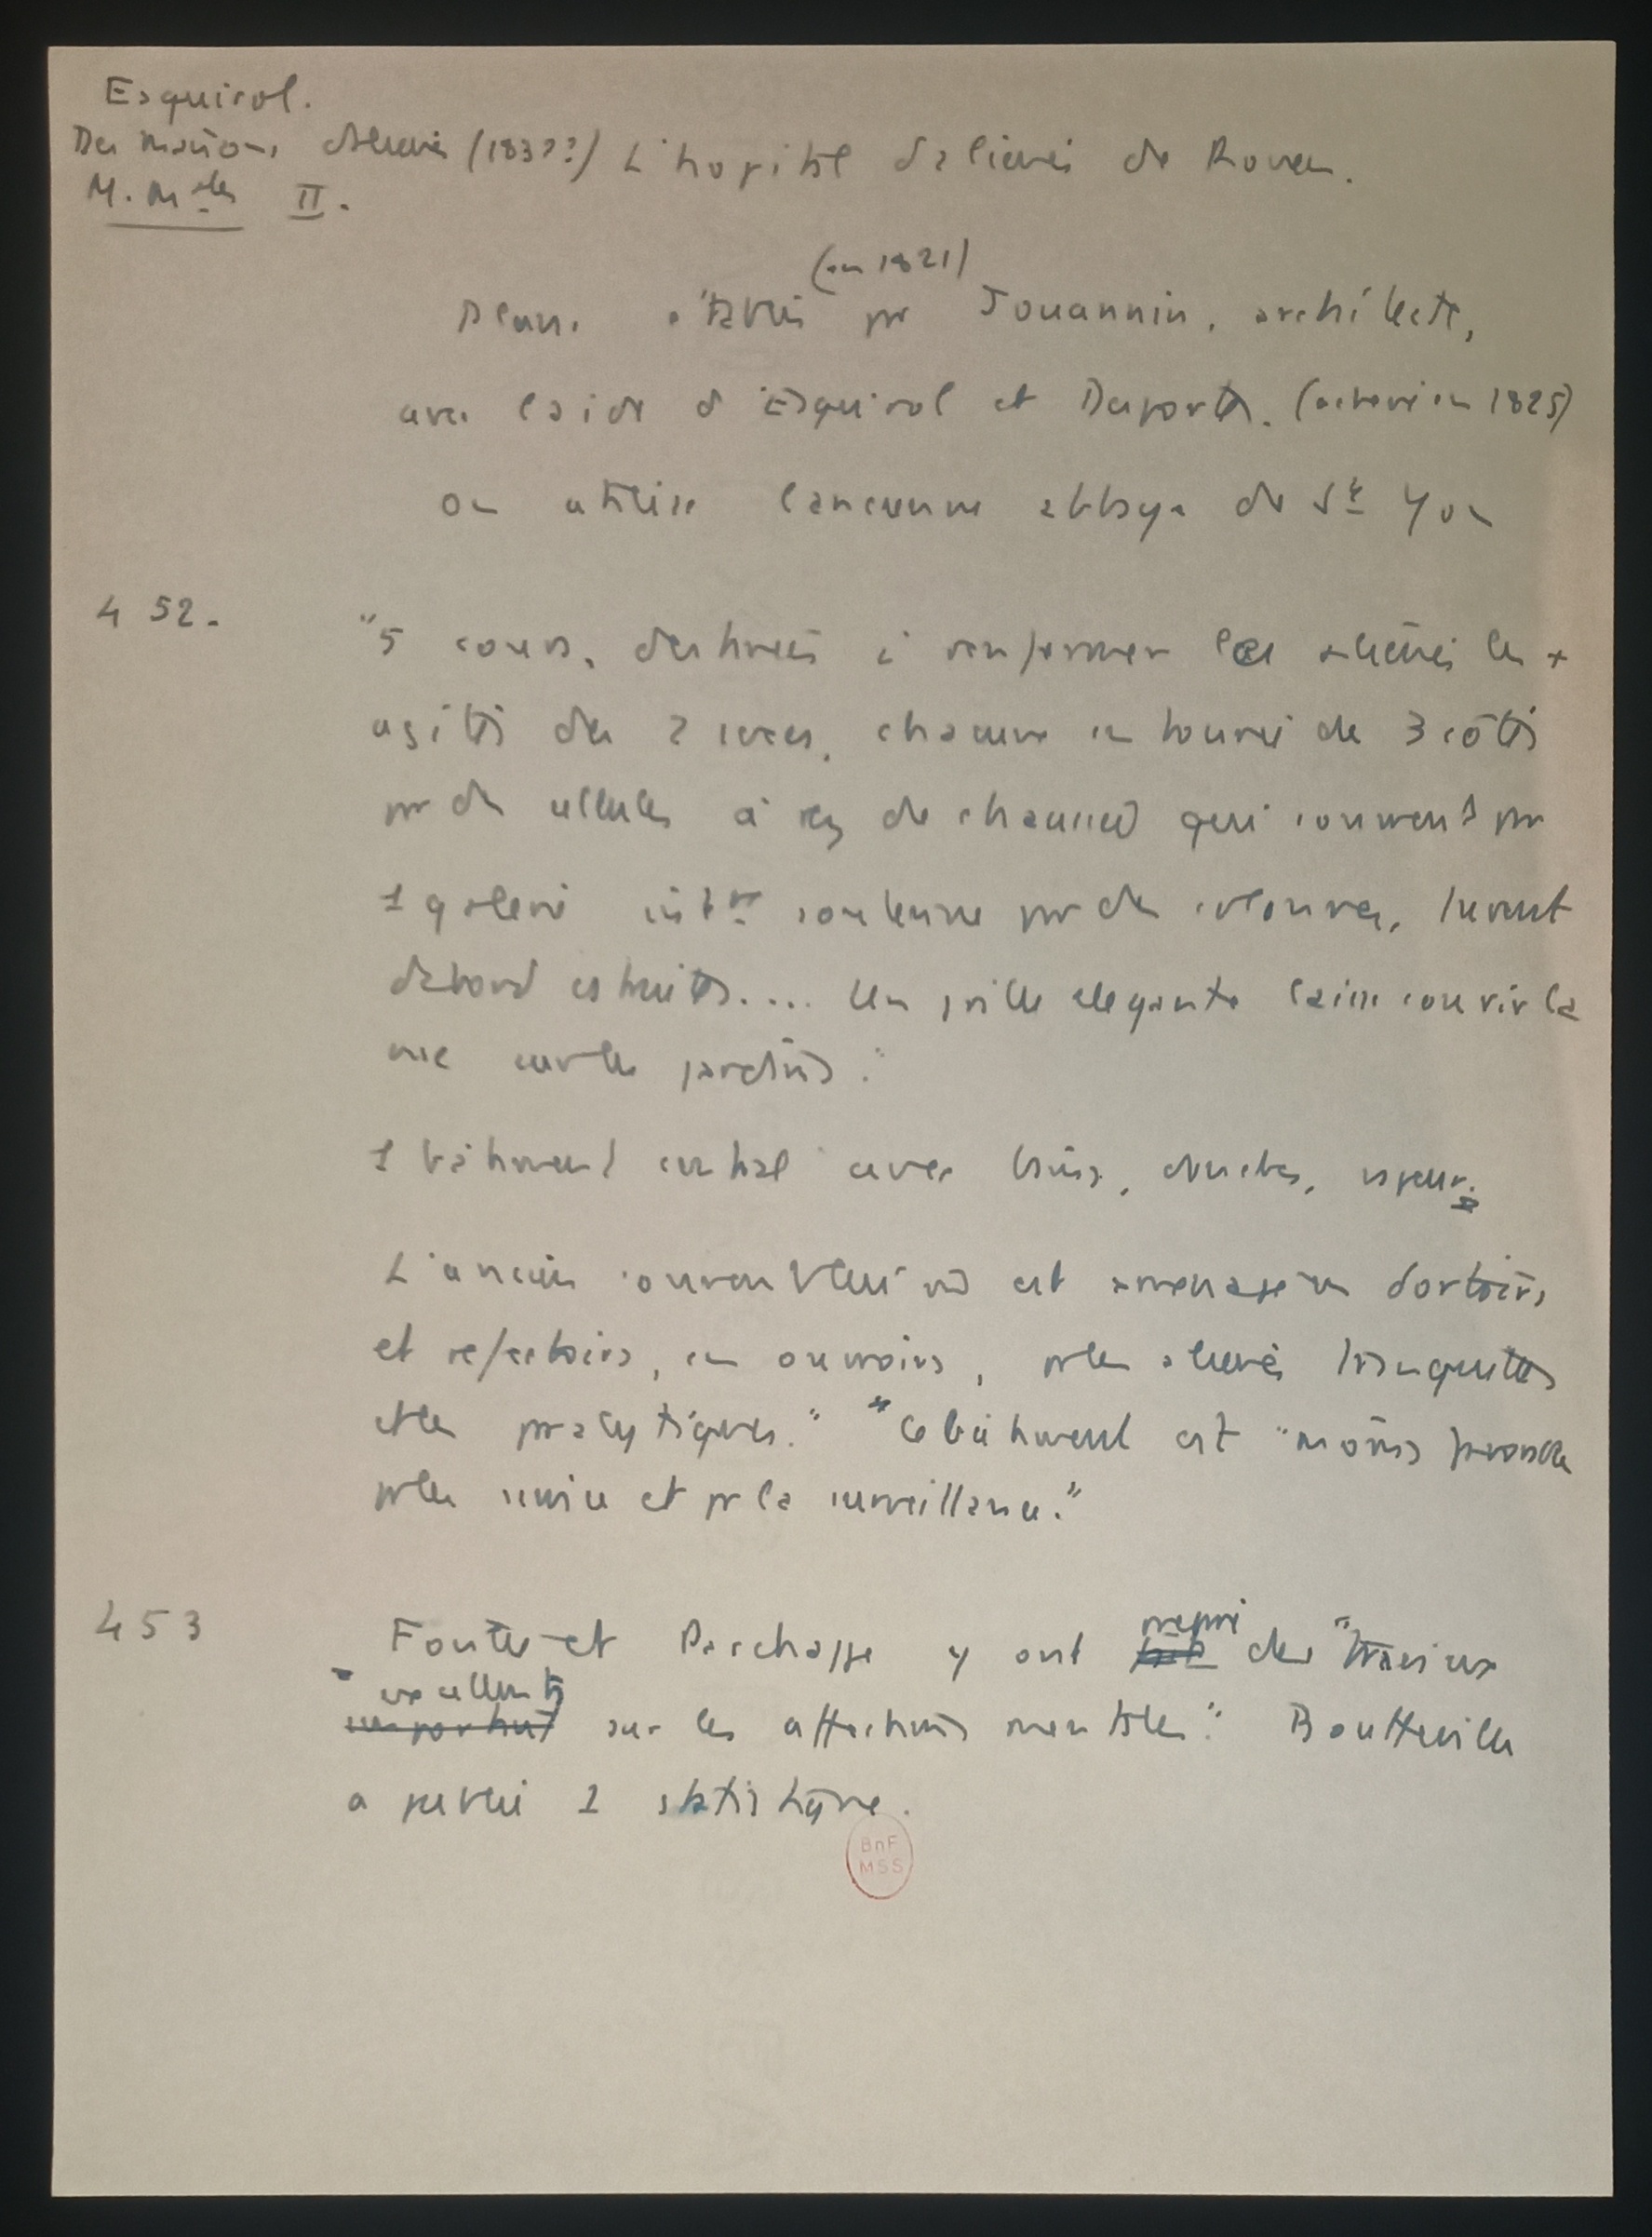 Esquirol.
Des maisons d'aliénés (183??) L'hopital d'aliénés de Rouen.
M. Males II.
(en 1821)
Plans établis pr Jouannin, architecte,
avec l'aide d'Esquirol et Desportes. (achevé en 1825)
on utilise l'ancienne abbaye de St Yon
452.
"5 cours, destinées à renfermer les aliénés les +
agités des 2 sexes, chacune entourée de 3 côtés
pr des cellules à rez de chaussée qui s'ouvrent pr
1 galerie intre soutenue pr des colonnes, furent
d'abord construites.... Une grille élégante laisse courir la
vue sur les jardins."
1 bâtiment central avec bains, douches, vapeur.
L'ancien couvent lui-même est aménagé en dortoirs
et refectoirs, en ouvroirs, pr les aliénés tranquilles
et les paralytiques." "Ce bâtiment est "moins favorable
pr les service et pr la surveillance."
453
Foville et Parchappe y ont fait des "travaux
repris
excellents
important sur les affections mentales." Boutteville
a publié 1 statistique.
BnF
MSS